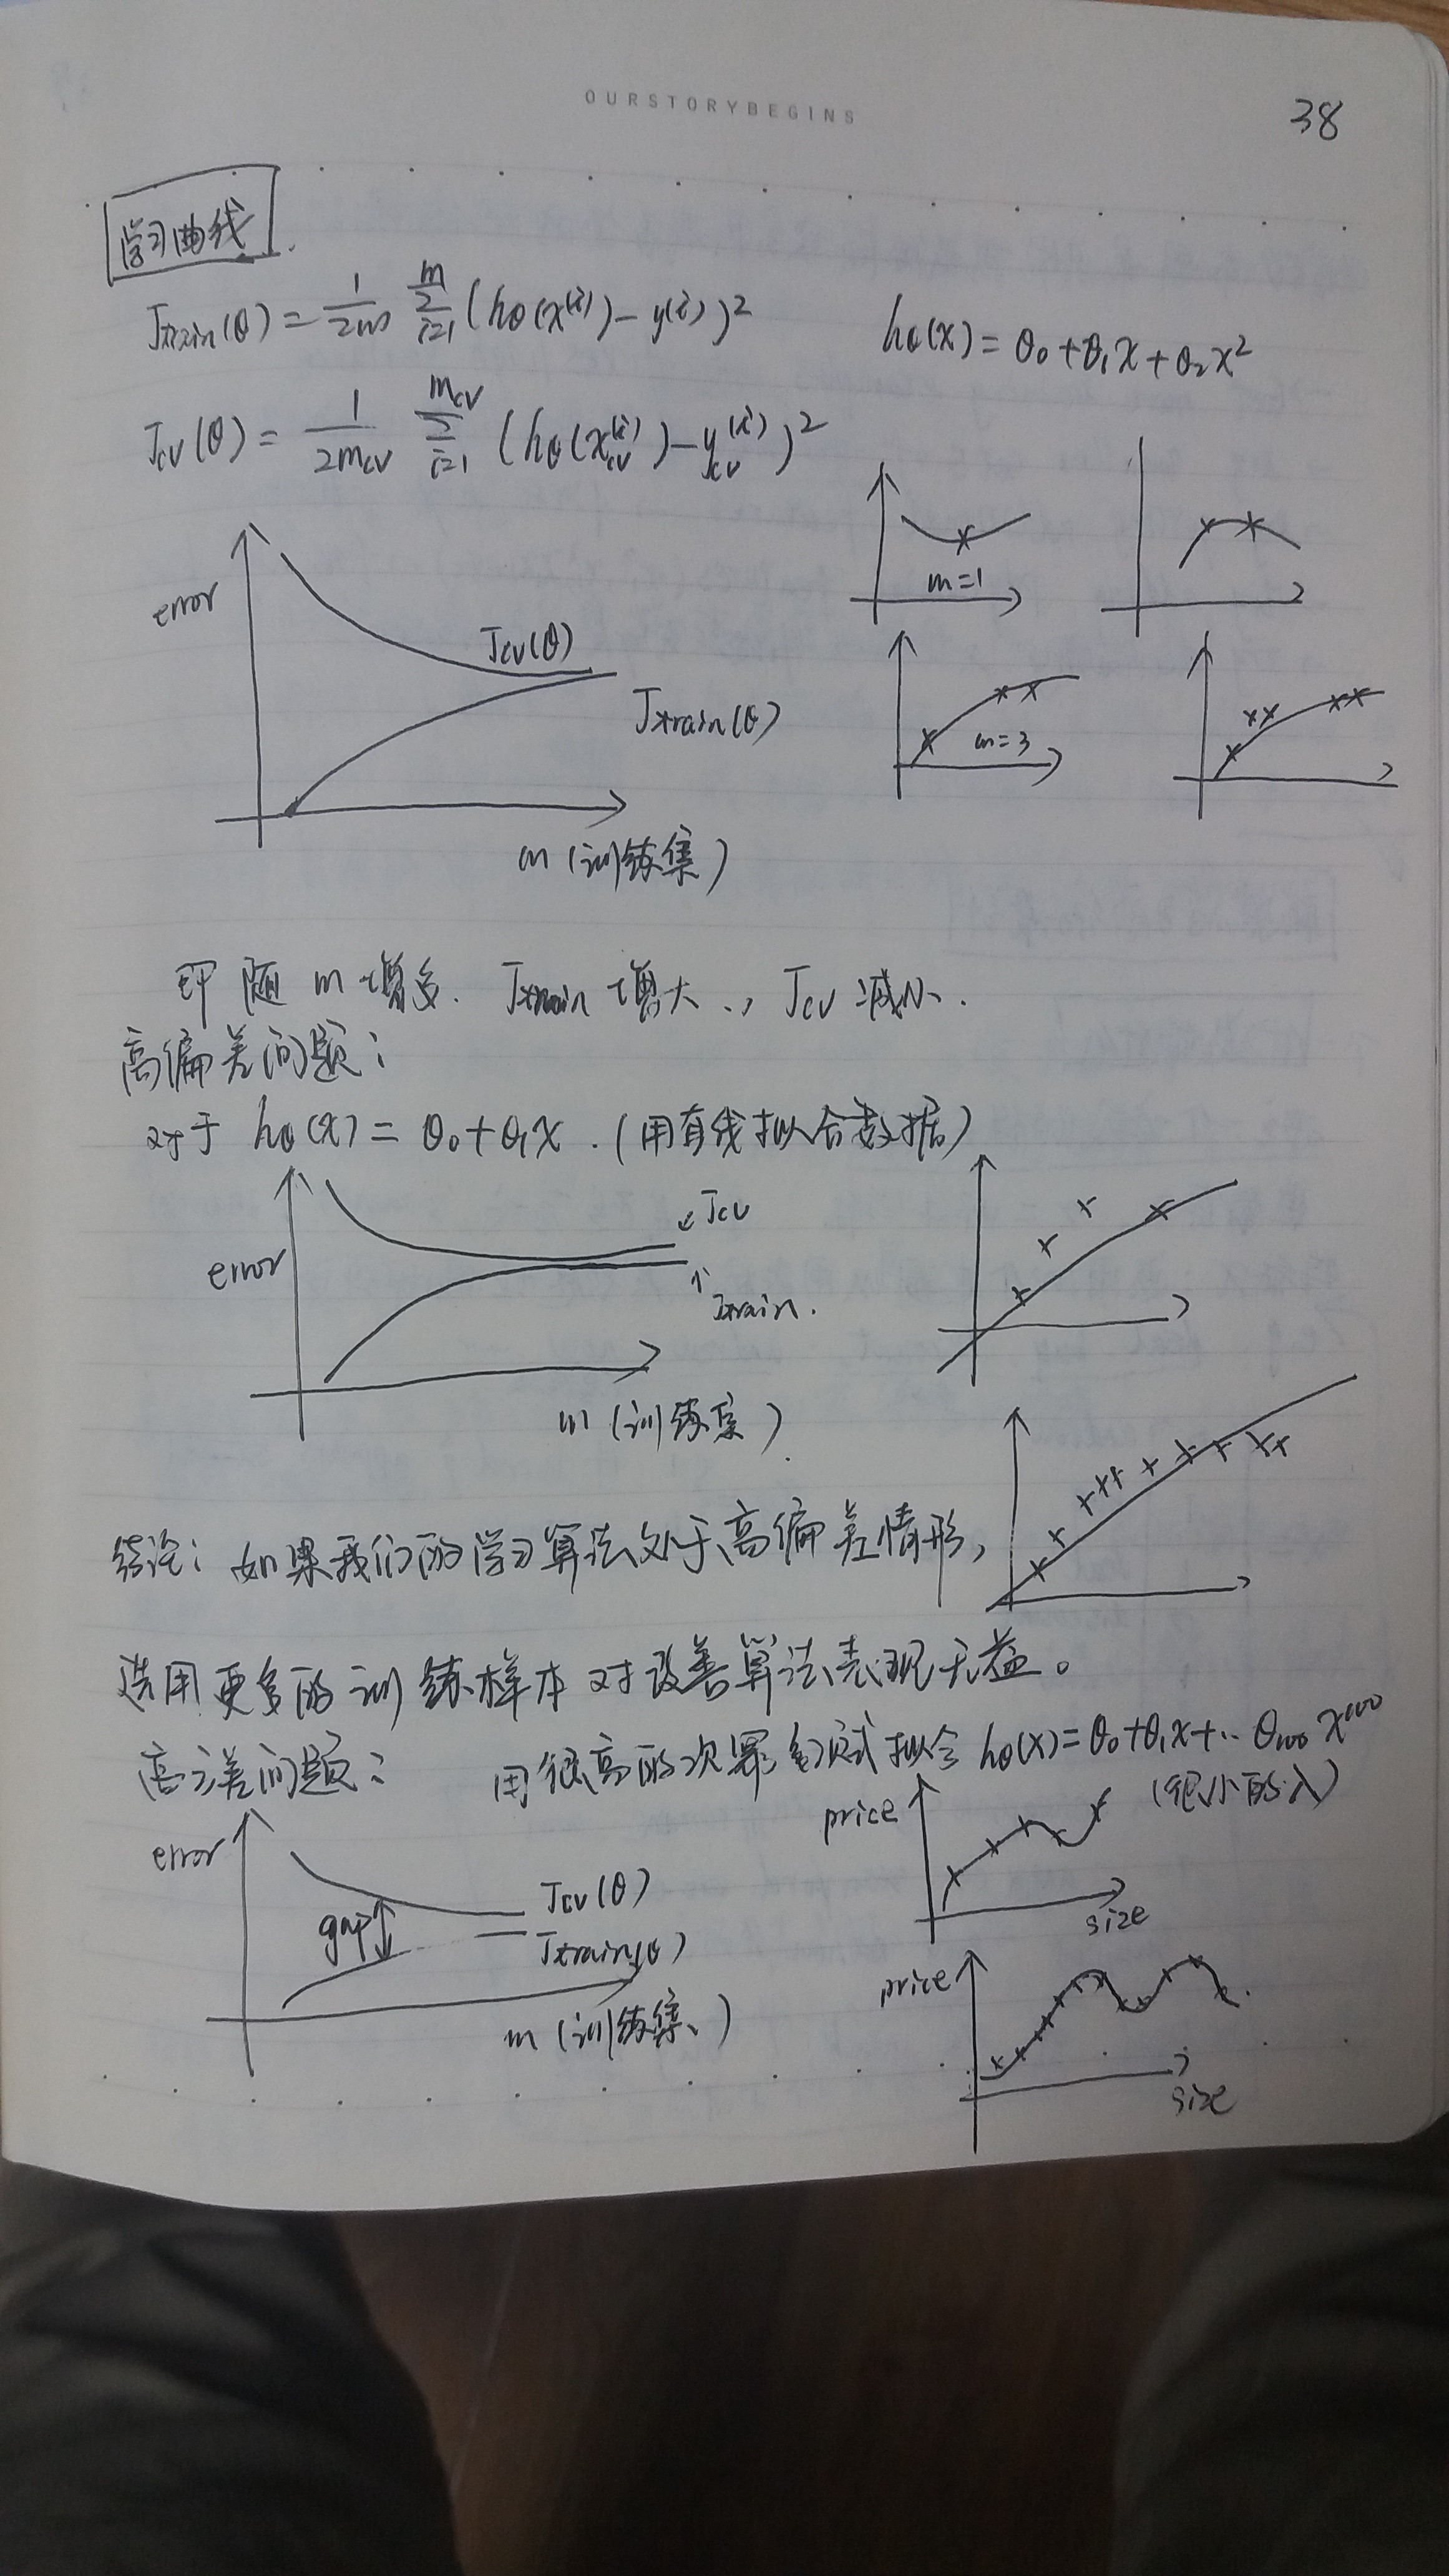 OURSTORYBEGINS
38
学习曲线
Jtrain(θ) = 1/2m Σ_{i=1}^{m} (hθ(x^(i)) - y^(i))²
hθ(x) = θ₀ + θ₁x + θ₂x²
Jcv(θ) = 1/2mcv Σ_{i=1}^{mcv} (hθ(xcv^(i)) - ycv^(i))²
error
Jcv(θ)
Jtrain(θ)
m (训练集)
m=1
m=3
即 随 m 增多. Jtrain 增大., Jcv 减小.
高偏差问题:
对于 hθ(x) = θ₀+θ₁x. (用直线拟合数据)
error
Jcv
Jtrain.
m (训练集)
结论: 如果我们的学习算法处于高偏差情形,
选用更多的训练样本对改善算法表现无益。
高方差问题: 用很高的次幂多项式拟合 hθ(x)=θ₀+θ₁x+..θ₁₀₀x¹⁰⁰
(很小的λ)
error
gap
Jcv(θ)
Jtrain(θ)
m (训练集)
price
size
price
size